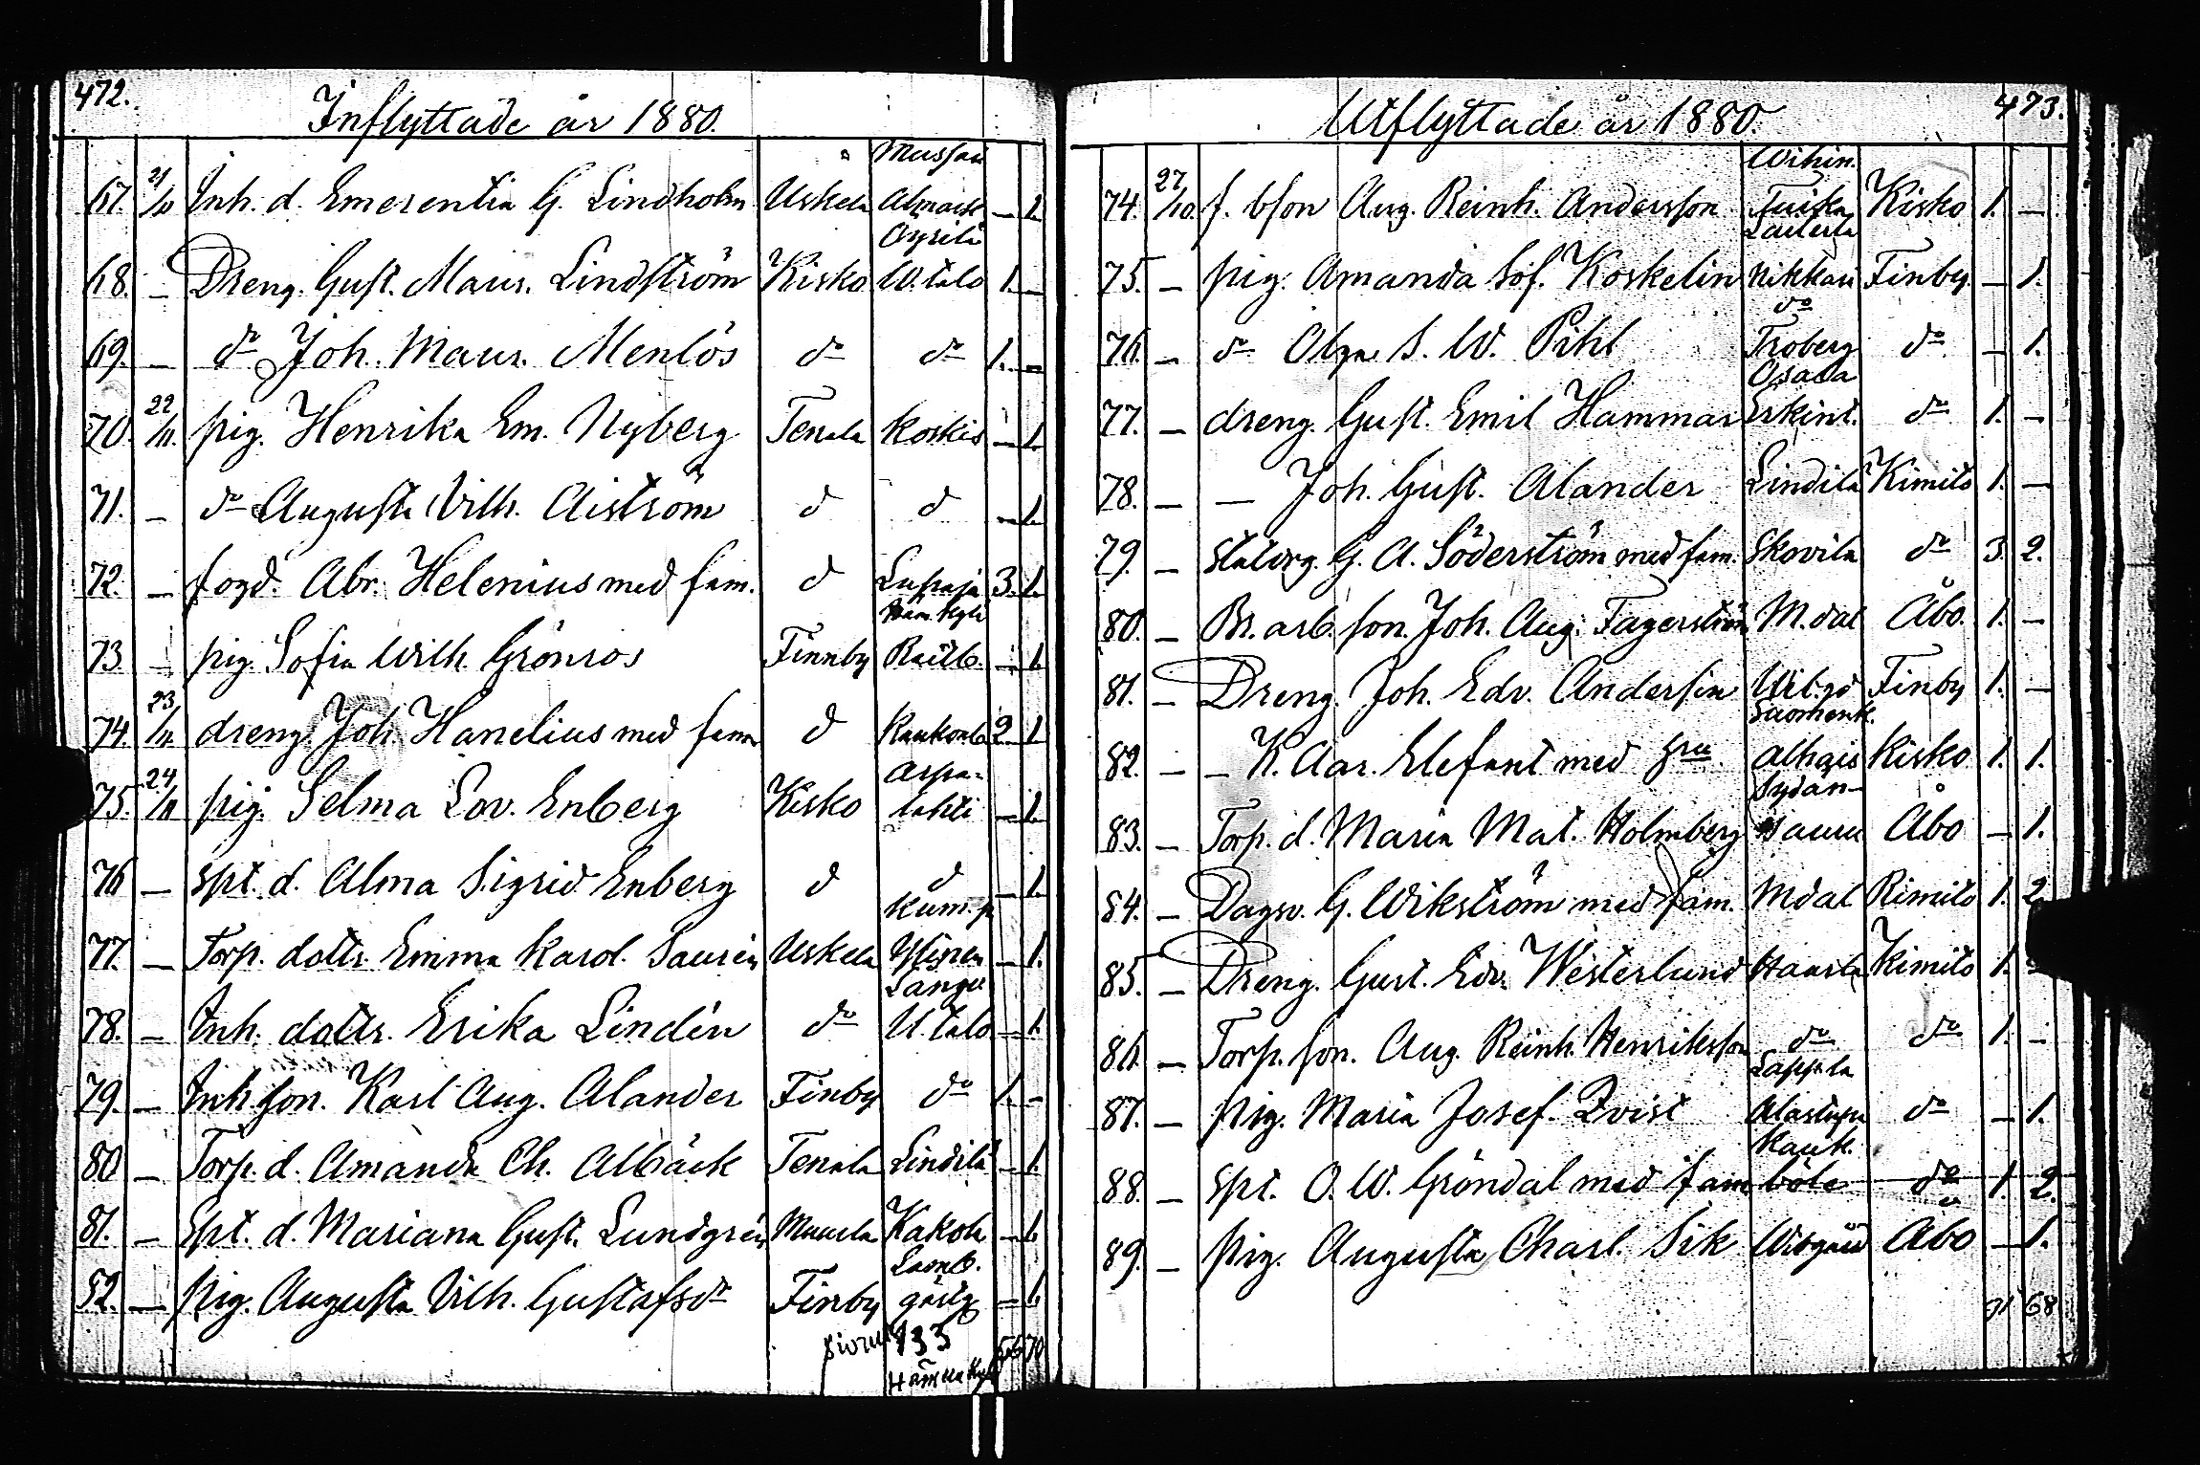 472.
Inflyttade år 1880.
67. 21/10 Inh. d. Emerentia G. Lindholm Uskela — 1.
68. — Dreng. Gust. Maur. Lindström Kisko W. talo 1. —
69. — do Joh. Maur. Menlös do do 1. —
70. 22/11. pig. Henrika Em. Nyberg Tenala Koskis — 1.
71. — do Augusta Vilh. Aiström d d — 1.
72. — fogd. Abr. Helenius med fam. d 3. 1.
73. — pig. Sofia Wilh. Grönros Finnby — 1.
74. 23/11. dreng. Joh. Hanelius med fam d 2. 1
75. 24/11 pig. Selma Lov. Enberg Kisko — 1.
76 — Spt. d. Alma Sigrid Enberg d d — 1.
77. — Torp. dottr. Emma Karol. Saurén Uskela — 1.
78. — Inh. dottr. Erika Lindén do — 1.
79. — Inh. son. Karl Aug. Alander Finby do 1. —
80 — Torp. d. Amanda Ch. Albäck Tenala Lindilä — 1.
81. — Spt. d. Mariana Gust. Lundgrén Kakola — 1.
82. — pig. Augusta Vilh. Gustafsdr Finby — 1.
70
473.
Utflyttade år 1880.
Wihin.
74. 27/10. f. bson Aug. Reinh. Andersson Kisko 1. —
75. — pig. Amanda Sof. Koskelin Nikkari Finby — 1.
do
76. — do Olga S. W. Pihl Froberg do — 1.
77. — dreng. Gust. Emil Hammar do 1. —
78. — — Joh. Gust. Alander Lindilä Kimito 1. —
79. — Statorg. G. A. Söderström med fam. Skovila do 3. 2.
80. — son. Joh. Aug. Fagerström M.dal Åbo. 1. —
81. — Dreng. Joh. Edv. Andersin Finby 1. —
82. — — K. Aar. Elefant med Kisko 1. 1.
Sydän-
83. — Torp. d. Maria Mat. Holmberg maau Åbo — 1.
84. — Dagsv. G. Wikström med fam. Mdal Rimito 1. 2.
85. — Dreng. Gust. Edv. Westerlund Haarla Kimito 1.
86. — Torp. son. Aug. Reinh. Henriksson do do 1. —
Lappila
87. — pig. Maria Josef. Qvist Alastupa do — 1.
Kauk.
88. — Spt. O. W. Gröndal med fam böle do 1. 2.
89. — pig. Augusta Charl. Sik Åbo — 1.
91 68